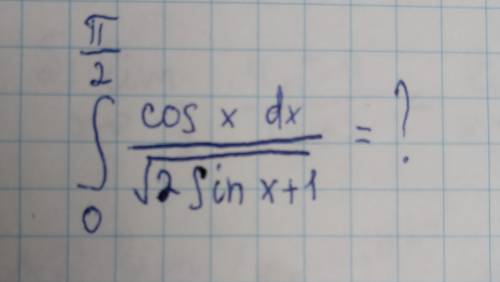 ∫₀^(π/2) cos x dx / √(2 sin x+1) = ?